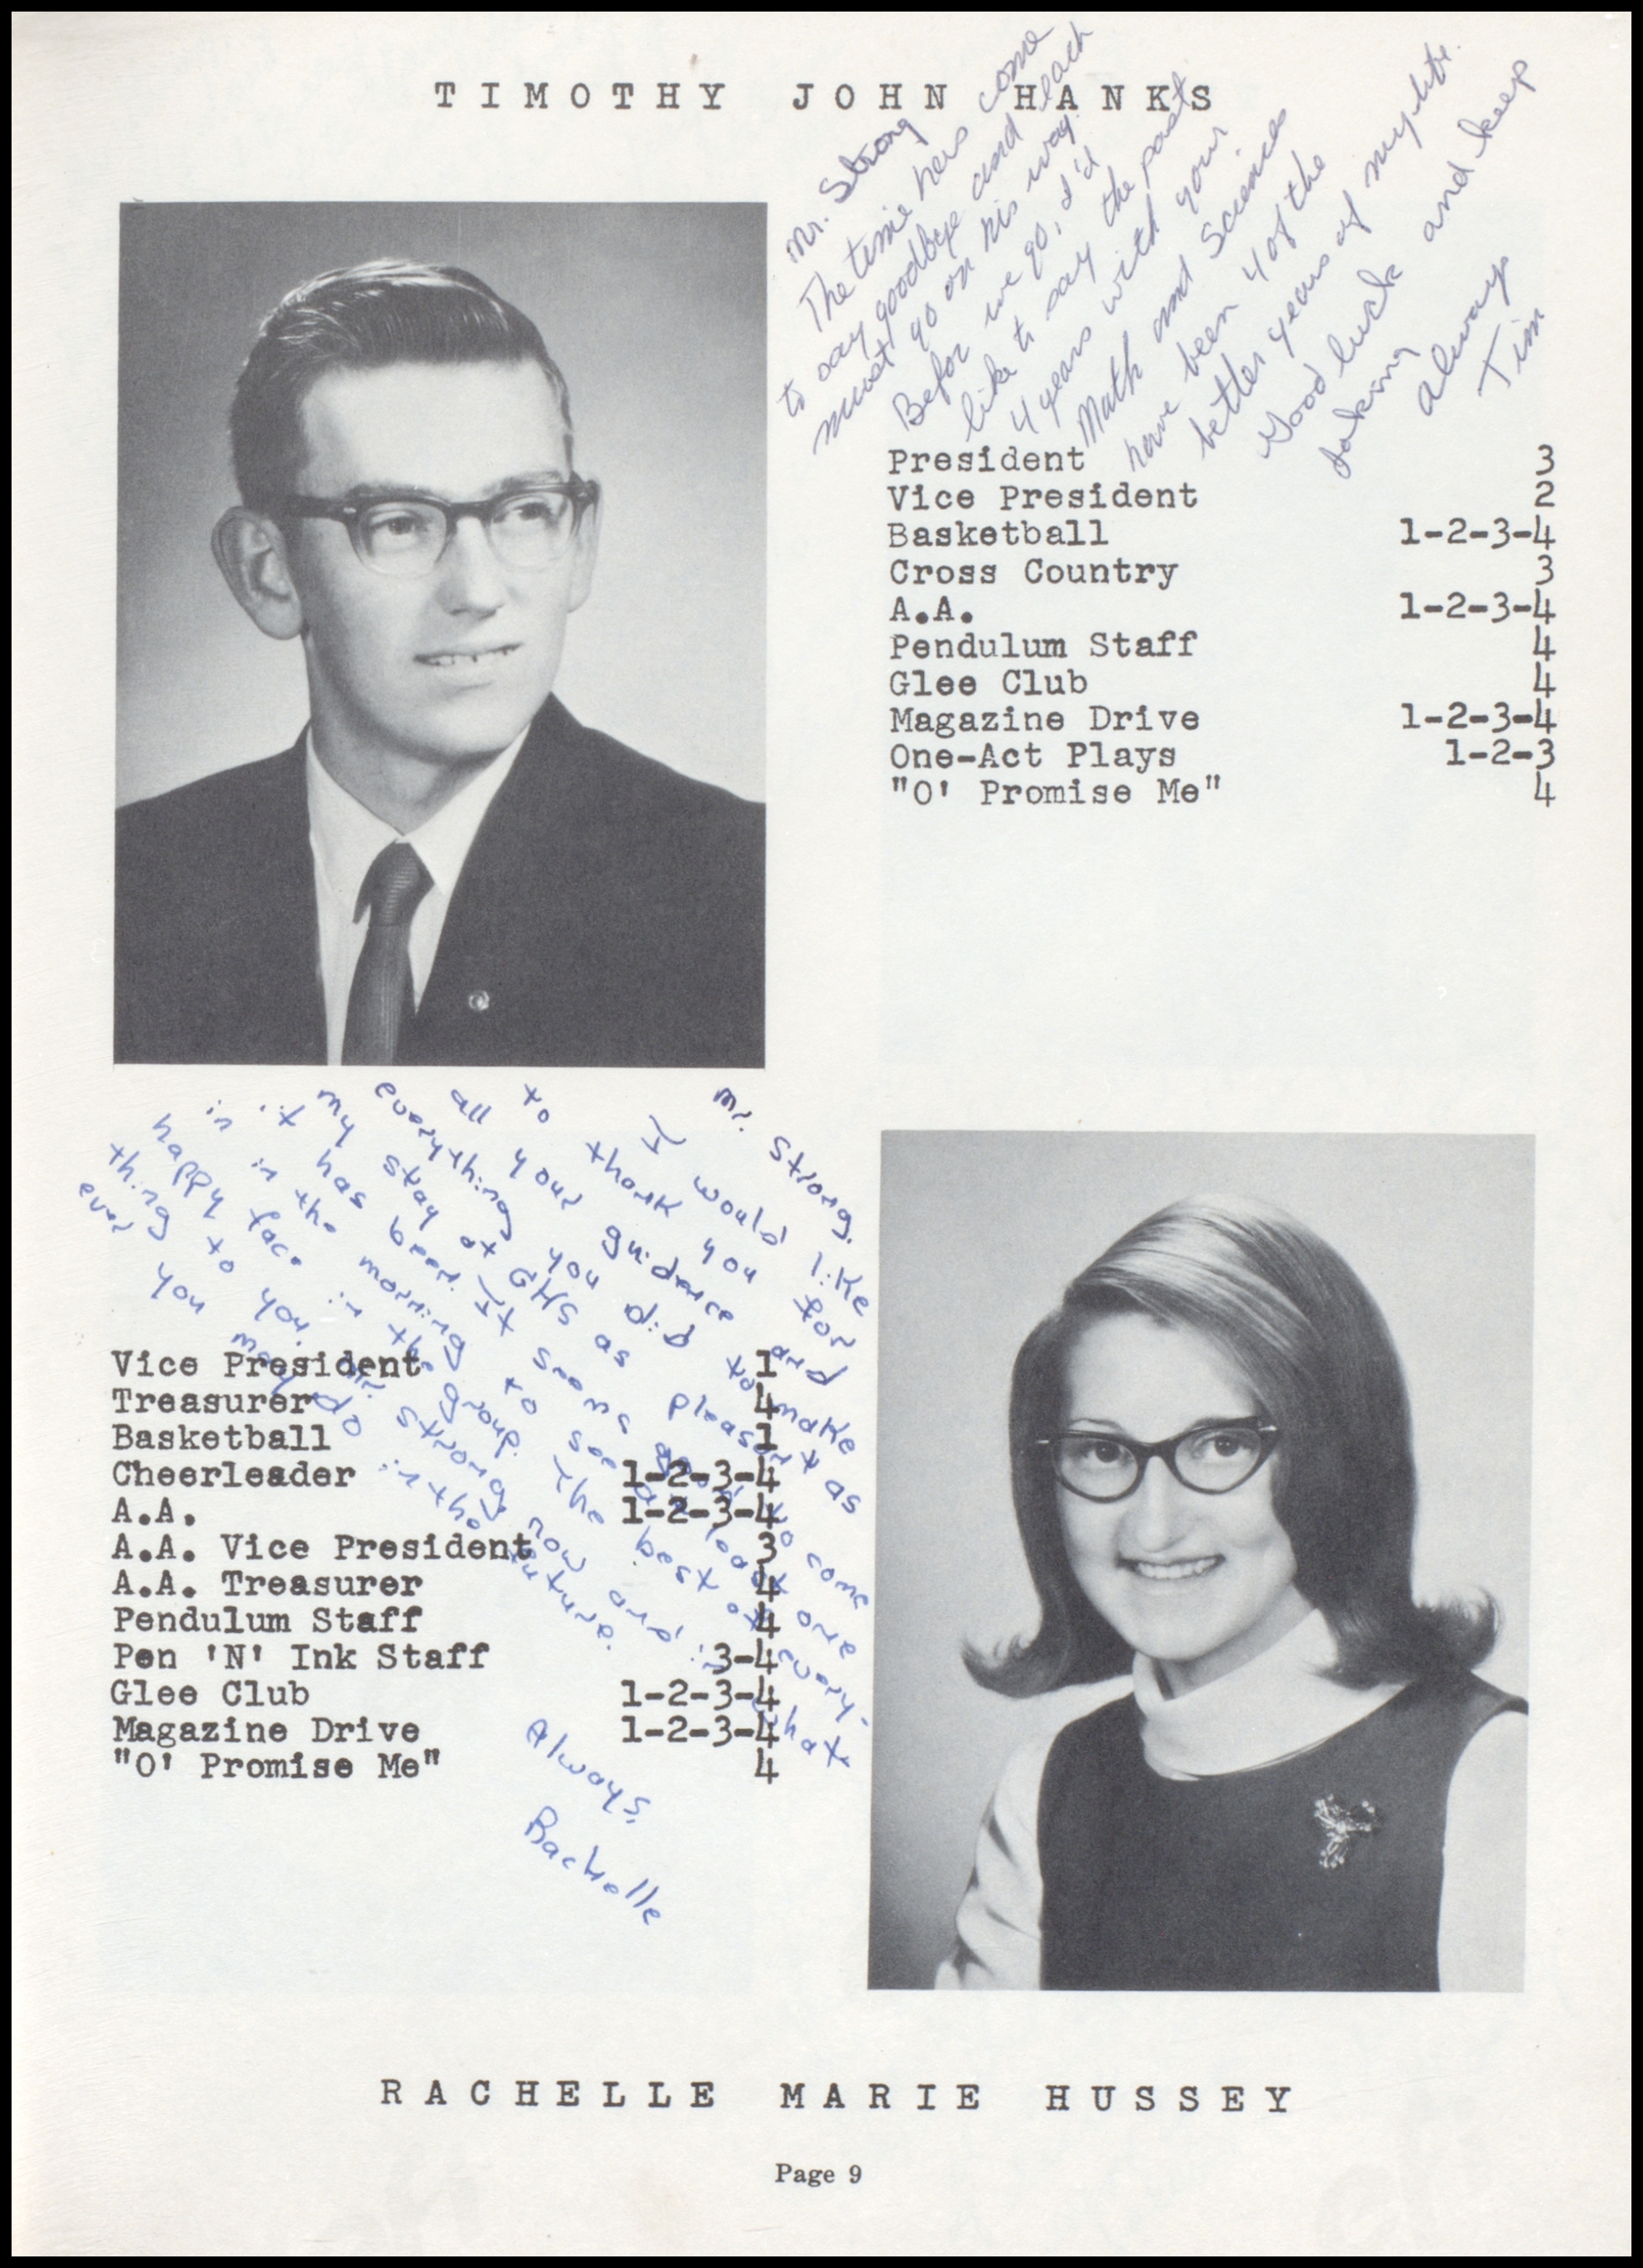 TIMOTHY JOHN HANKS
Mr. Strong
The time has come
to say goodbye and each
must go on his way.
Befor we go, I'd
like to say the past
4 years with your
Math and Sciences
have been 4 of the
better years of my life.
Good luck and keep
Always
Tim
President 3
Vice President 2
Basketball 1-2-3-4
Cross Country 3
A.A. 1-2-3-4
Pendulum Staff 4
Glee Club 4
Magazine Drive 1-2-3-4
One-Act Plays 1-2-3
"O' Promise Me" 4
Mr. Strong,
I would like
to thank you for
all your guidance and
everything you did to make
my stay at GHS as pleasant as
it has been. It seems good to come
in in the morning to see at least one
happy face in the group. The best of every-
thing to you, Mr. Strong now and in what
ever you may do in the future.
Always,
Rachelle
Vice President 1
Treasurer 4
Basketball 1
Cheerleader 1-2-3-4
A.A. 1-2-3-4
A.A. Vice President 3
A.A. Treasurer 4
Pendulum Staff 4
Pen 'N' Ink Staff 3-4
Glee Club 1-2-3-4
Magazine Drive 1-2-3-4
"O' Promise Me" 4
RACHELLE MARIE HUSSEY
Page 9